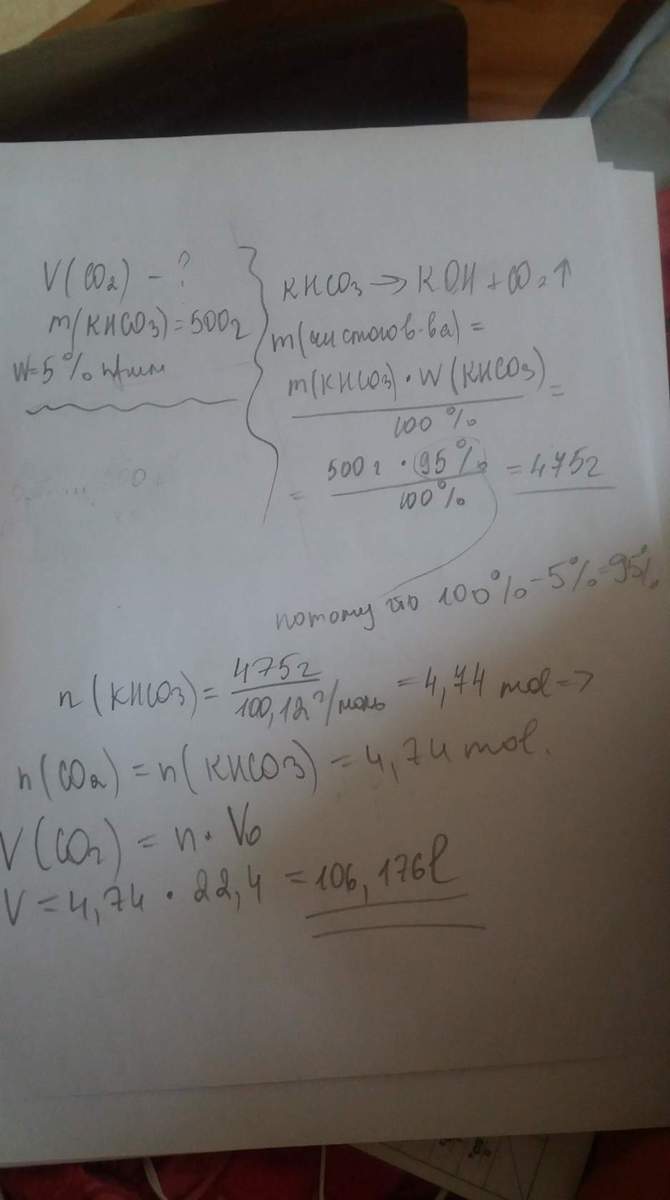 V(CO₂) - ?
m(KHCO3) = 500г
W=5%
KHCO3 → KOH + CO₂↑
m(чистого в-ва) =
m(KHCO3) · W(KHCO3)
100%
=
= 500г · 95%
100%
= 475г
потому что 100% - 5% = 95%
n(KHCO3) = 475г
100,12г/моль
= 4,74 mol ⇒
n(CO₂) = n(KHCO3) = 4,74 mol.
V(CO₂) = n · V₀
V = 4,74 · 22,4 = 106,176l